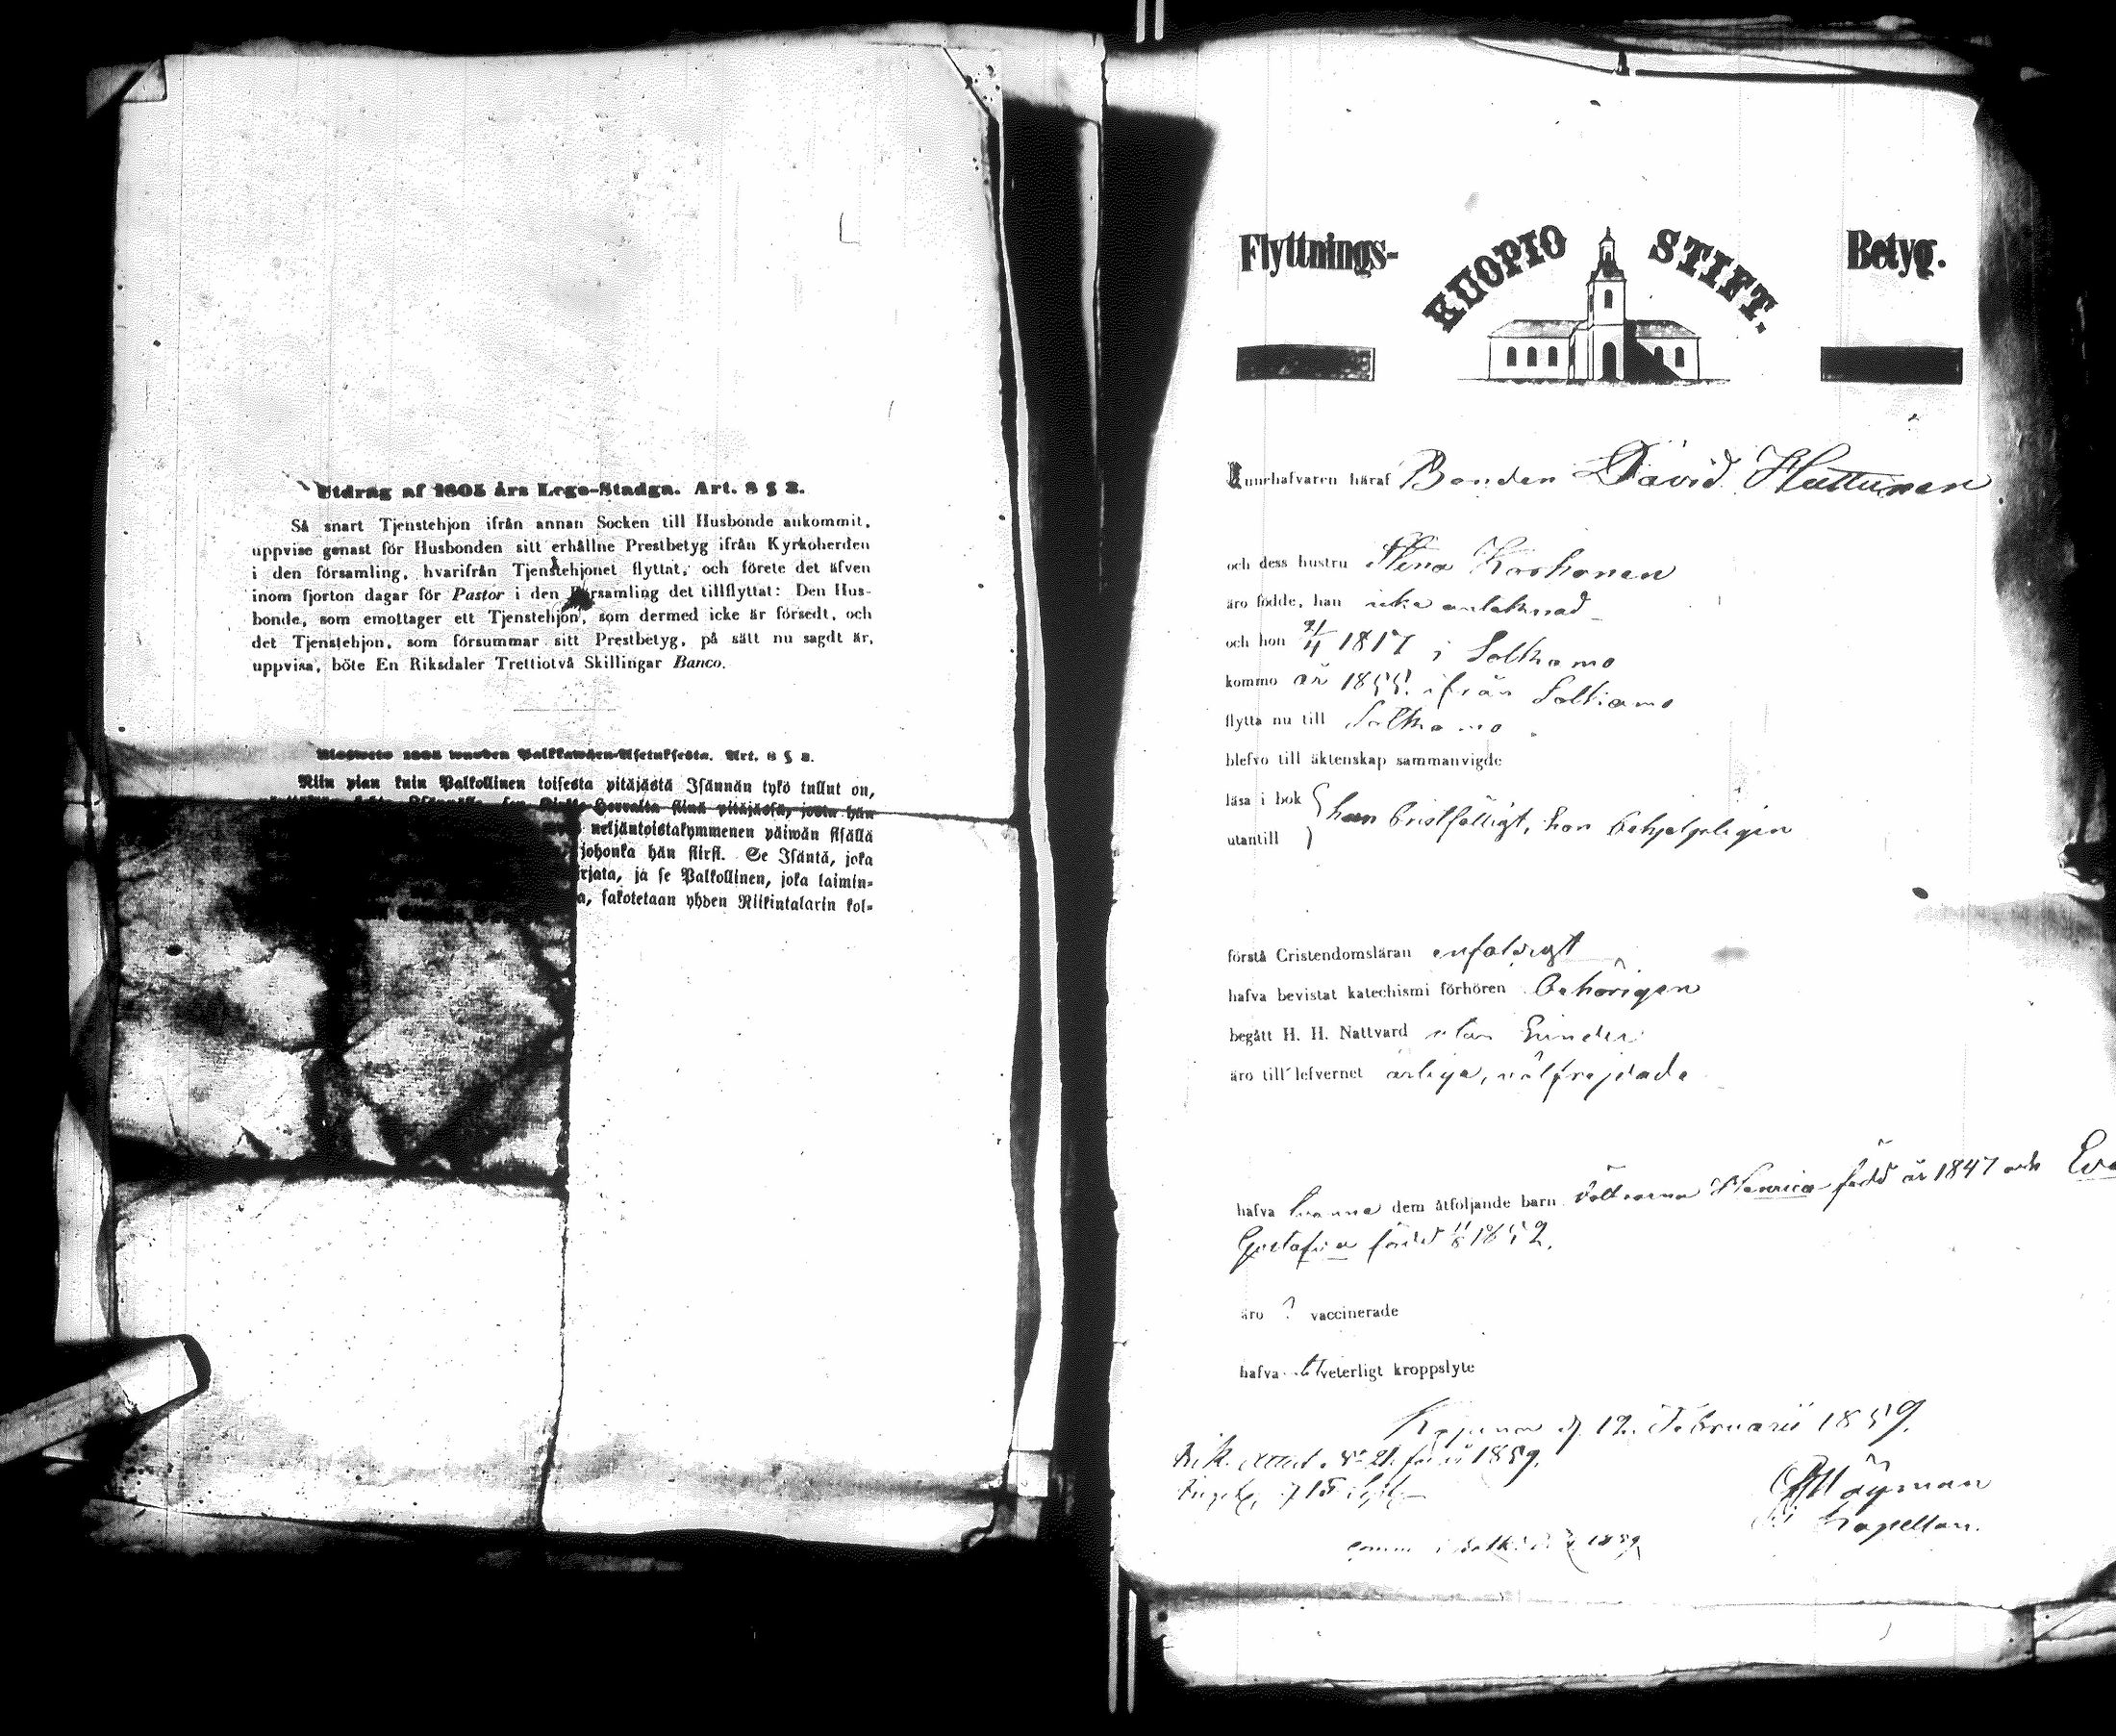 Utdrag af 1805 års Lego-Stadga. Art. 8 § 2.
Så snart Tjenstehjon ifrån annan Socken till Husbonde ankommit,
uppvise genast för Husbonden sitt erhållne Prestbetyg ifrån Kyrkoherden
i den församling, hvarifrån Tjenstehjonet flyttat, och förete det äfven
inom fjorton dagar för Pastor i den Församling det tillflyttat: Den Hus-
bonde, som emottager ett Tjenstehjon, som dermed icke är försedt, och
det Tjenstehjon, som försummar sitt Prestbetyg, på sätt nu sagdt är,
uppvisa, böte En Riksdaler Trettiotvå Skillingar Banco.
Ulosweto 1805 wuoden Palkkawäen-Asetuksesta. Art. 8 § 2.
Niin pian kuin Palkollinen toisesta pitäjästä Isännän tykö tullut on,
Herralta siinä pitäjässä, josta hän
neljäntoistakymmenen päiwän sisällä
johonka hän siirsi. Se Isäntä, joka
rjata, ja se Palkollinen, joka laimin-
a, sakotetaan yhden Riikintalarin kol-
Flyttnings- KUOPIO STIFT. Betyg.
Innehafvaren häraf Bonden David Huttunen
och dess hustru Stina Korhonen
äro födde, han icke antecknad
och hon 21/4 1817 i Sotkamo
kommo år 1855 ifrån Sotkamo
flytta nu till Sotkamo
blefvo till äktenskap sammanvigde
läsa i bok
utantill han bristfälligt, hon behjelpligen
förstå Cristendomsläran enfaldigt
hafva bevistat katechismi förhören behörigen
begått H. H. Nattvard utan hinder
äro till lefvernet ärliga, välfrejdade
hafva dem åtföljande barn döttrarna Henrica född år 1847 och Eva
Gustafva född 1852.
äro ? vaccinerade
hafva veterligt kroppslyte
Kajana d. 12. Februarii 1859.
för år 1859.
Kapellan.
1859